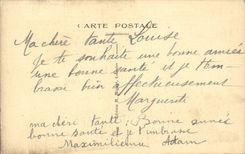 CARTE POSTALE
Ma chère tante Louise
Je te souhaite une bonne année
une bonne santé et je t'em
brasse bien affectueusement
Marguerite
ma chère tante : Bonne année
bonne santé et je t'embrasse
Maximilienne Adam